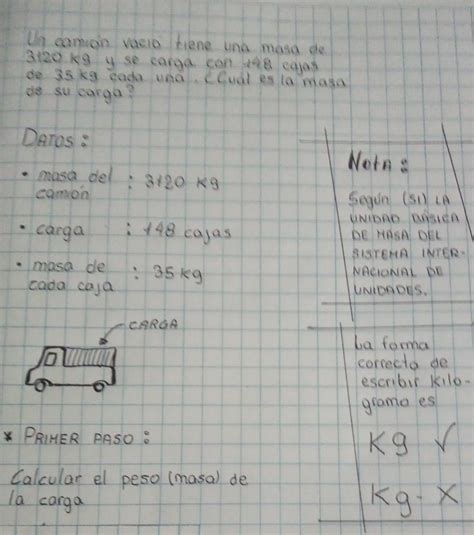 Un camión vacio tiene una masa de
3120 kg y se carga con 148 cajas
de 35 kg cada una. ¿Cuál es la masa
de su carga?
DATOS:
• masa del : 3120 kg
camión
• carga : 148 cajas
• masa de : 35 kg
cada caja
CARGA
* PRIMER PASO:
Calcular el peso (masa) de
la carga
Nota:
Según (SI) LA
UNIDAD BÁSICA
DE MASA DEL
SISTEMA INTER-
NACIONAL DE
UNIDADES.
La forma
correcta de
escribir kilo-
gramo es
Kg ✓
Kg. X